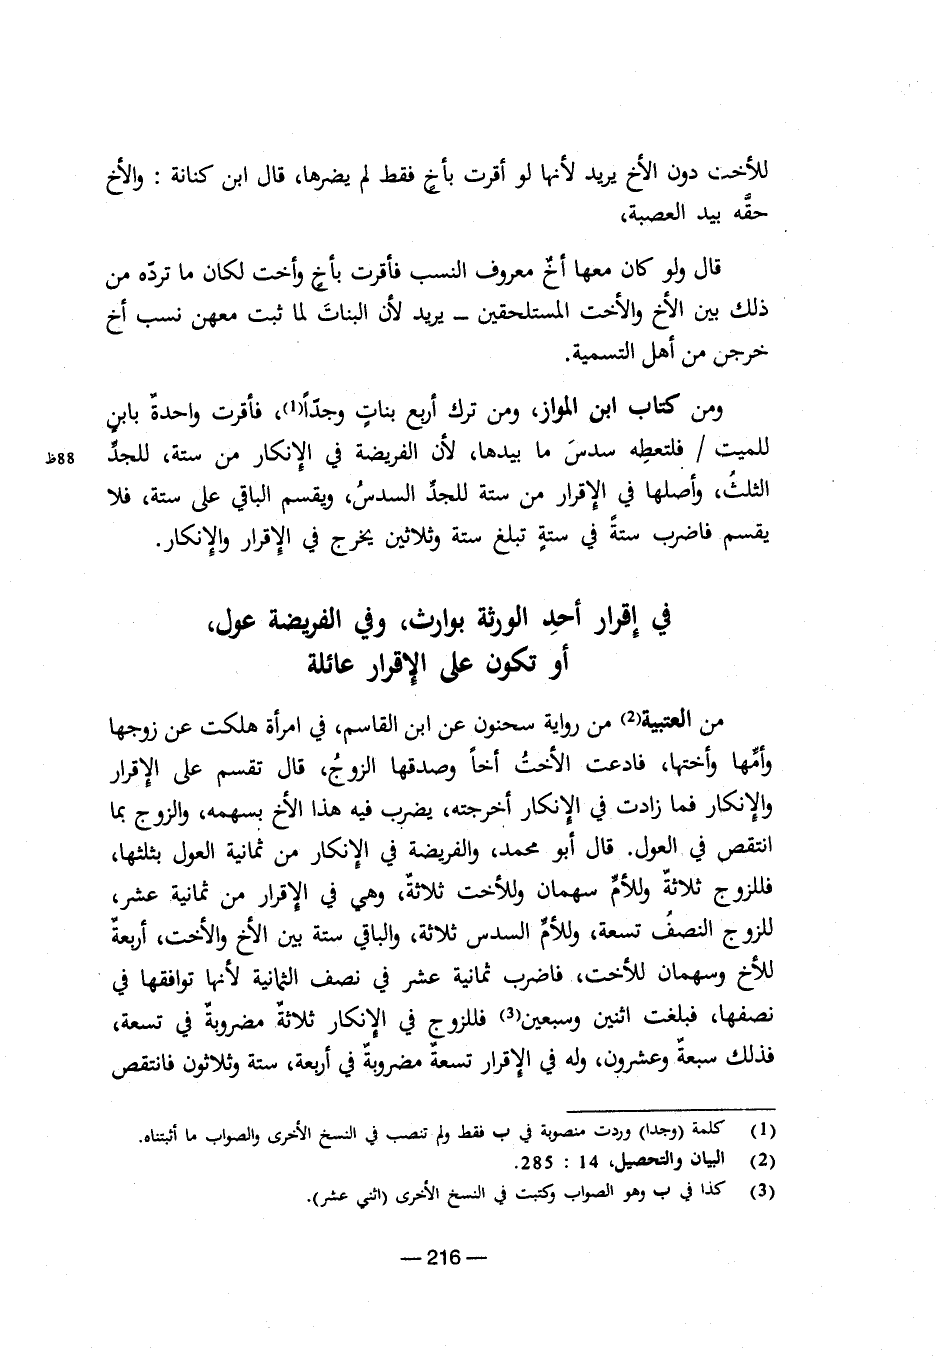 للأخت دون الأخ يريد لأنها لو أقرت بأخٍ فقط لم يضرها، قال ابن كنانة : والأخ
حقَّه بيد العصبة،
قال ولو كان معها أخٌ معروف النسب فأقرت بأخٍ وأخت لكان ما تردّه من
ذلك بين الأخ والأخت المستلحقين ــ يريد لأن البناتَ لما ثبت معهن نسب أخ
خرجن من أهل التسمية.
ومن كتاب ابن المواز، ومن ترك أربع بناتٍ وجدّاً(1)، فأقرت واحدةٌ بابنٍ
للميت / فلتعطِه سدسَ ما بيدها، لأن الفريضة في الإنكار من ستة، للجدِّ 88ظ
الثلثُ، وأصلها في الإقرار من ستة للجدِّ السدسُ، ويقسم الباقي على ستة، فلا
يقسم فاضرب ستةً في ستةٍ تبلغ ستة وثلاثين يخرج في الإقرار والإنكار.
في إقرار أحدِ الورثة بوارث، وفي الفريضة عول،
أو تكون على الإقرار عائلة
من العتبية(2) من رواية سحنون عن ابن القاسم، في امرأة هلكت عن زوجها
وأمِّها وأختها، فادعت الأختُ أخاً وصدقها الزوجُ، قال تقسم على الإقرار
والإنكار فما زادت في الإنكار أخرجته، يضرب فيه هذا الأخ بسهمه، والزوج بما
انتقص في العول. قال أبو محمد، والفريضة في الإنكار من ثمانية العول بثلثها،
فللزوج ثلاثةٌ وللأمِّ سهمان وللأخت ثلاثةٌ، وهي في الإقرار من ثمانية عشر،
للزوج النصفُ تسعة، وللأمِّ السدس ثلاثة، والباقي ستة بين الأخ والأخت، أربعةٌ
للأخ وسهمان للأخت، فاضرب ثمانية عشر في نصف الثمانية لأنها توافقها في
نصفها، فبلغت اثنين وسبعين(3) فللزوج في الإنكار ثلاثةٌ مضروبةٌ في تسعة،
فذلك سبعةٌ وعشرون، وله في الإقرار تسعةٌ مضروبةٌ في أربعة، ستة وثلاثون فانتقص
(1) كلمة (وجدا) وردت منصوبة في ب فقط ولم تنصب في النسخ الأخرى والصواب ما أثبتناه.
(2) البيان والتحصيل، 14 : 285.
(3) كذا في ب وهو الصواب وكتبت في النسخ الأخرى (اثني عشر).
— 216 —